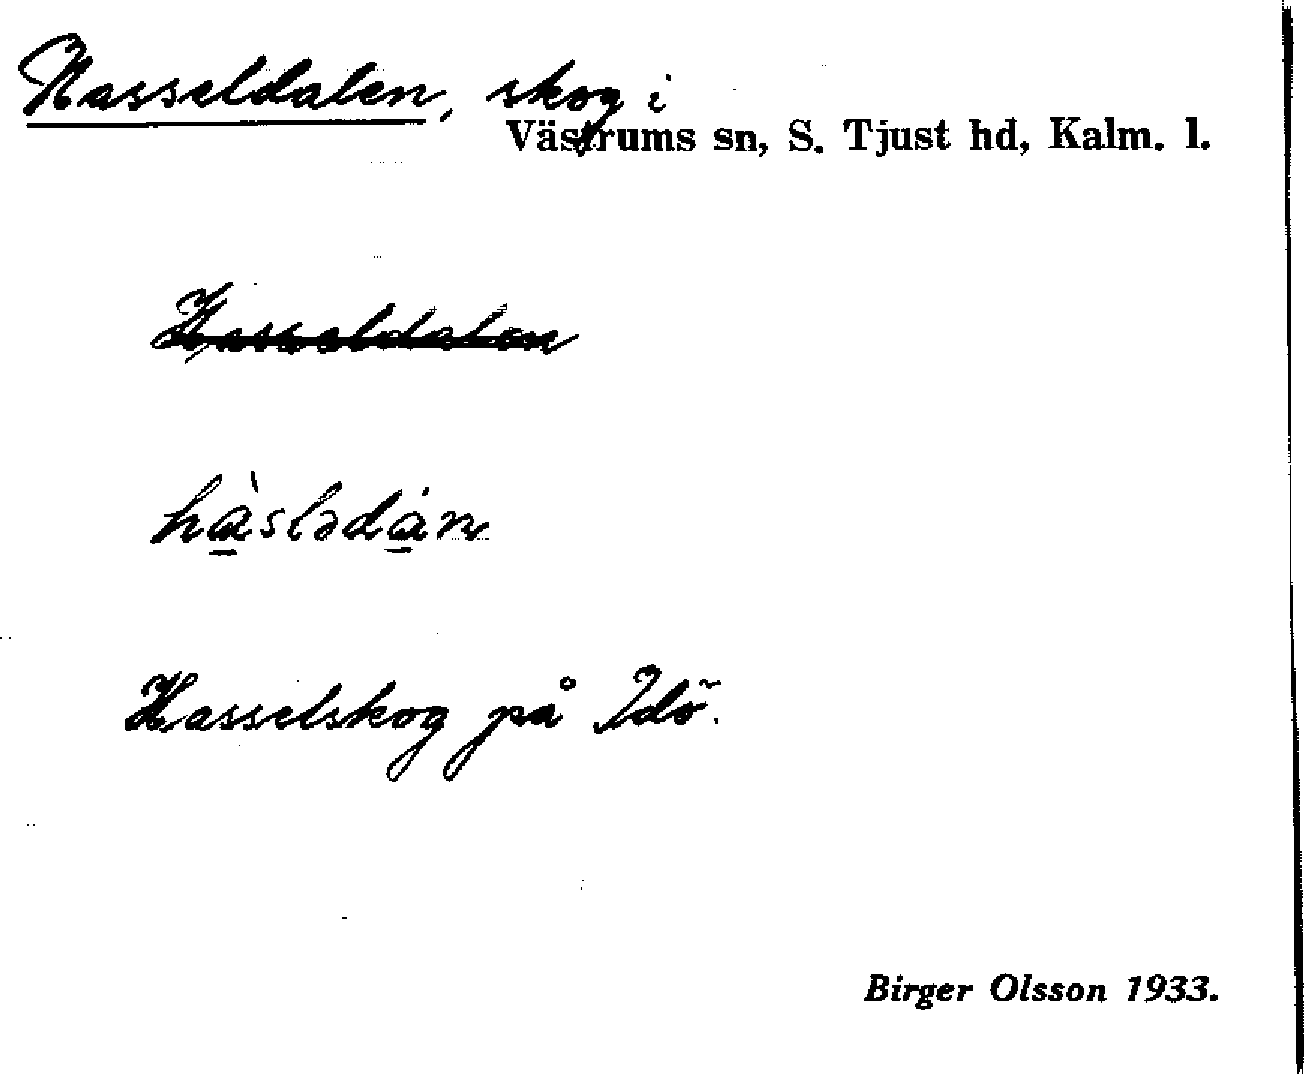 Hasseldalen, skog i
Västrums sn, S. Tjust hd, Kalm. l.
Hasseldalen
hàslədán
Hasselskog på Idö.
Birger Olsson 1933.